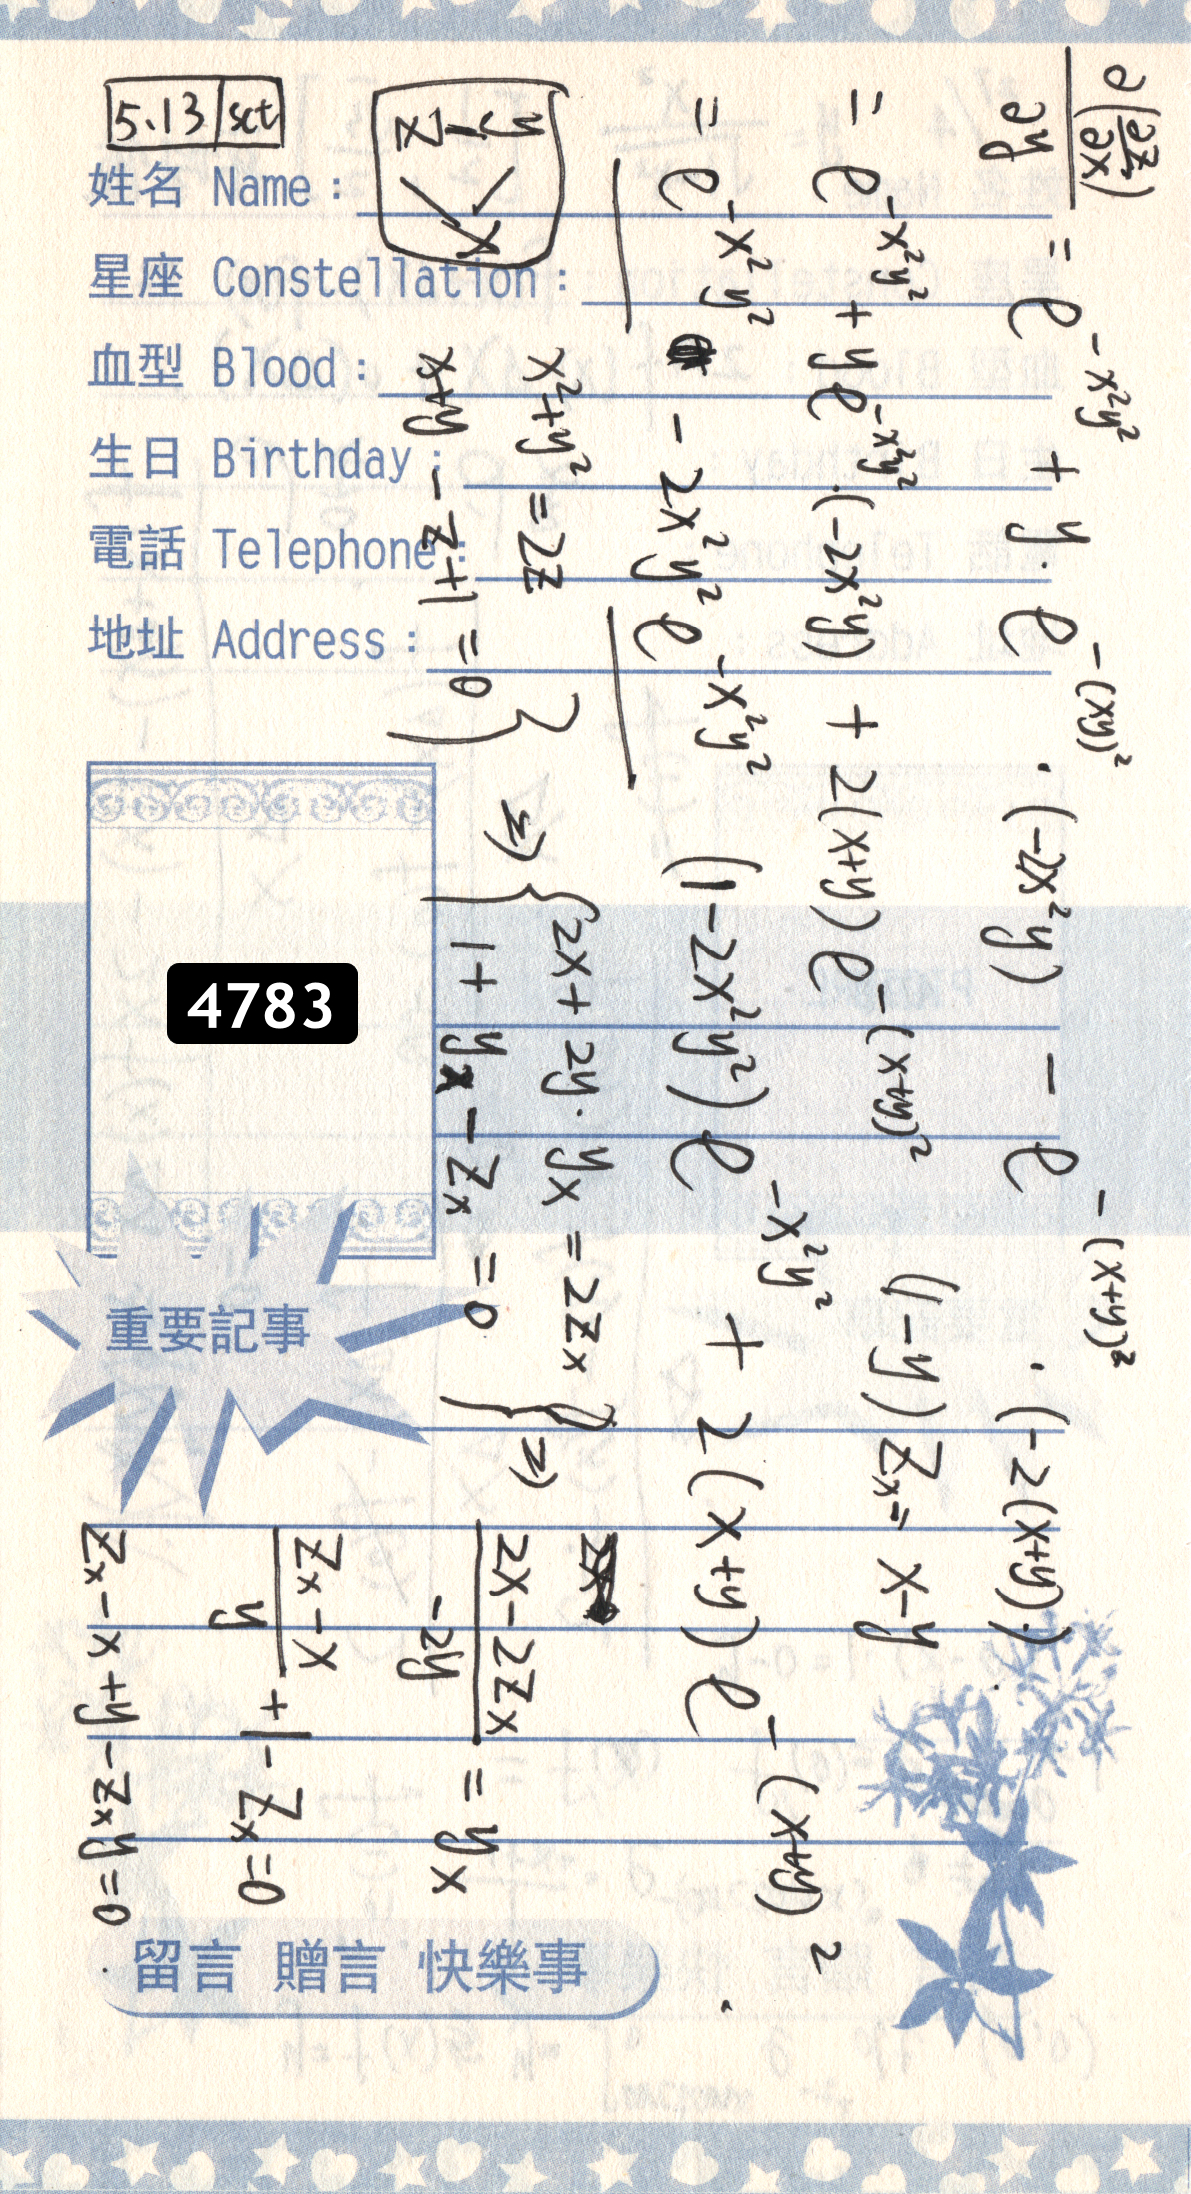 5.13 sct
姓名 Name :
星座 Constellation :
血型 Blood :
生日 Birthday :
電話 Telephone :
地址 Address :
4783
重要記事
留言 贈言 快樂事
∂(∂z/∂x)/∂y = e^{-x²y²} + y · e^{-(xy)²} · (-2x²y) - e^{-(x+y)²} · (-2(x+y)·)
= e^{-x²y²} + ye^{-x²y²} · (-2x²y) + 2(x+y) e^{-(x+y)²}
= e^{-x²y²} - 2x²y² e^{-x²y²} (1-2x²y²) e^{-x²y²} + 2(x+y) e^{-(x+y)²}
(1-y) Zx = x-y
y
z
x
x²+y² = 2z
x+y - z+1 = 0 } ⇒ { 2x + 2y · yx = 2Zx
1 + yx - Zx = 0 } ⇒
(2x - 2Zx)/(-2y) = yx
(Zx - x)/y + 1 - Zx = 0
Zx - x + y - Zxy = 0